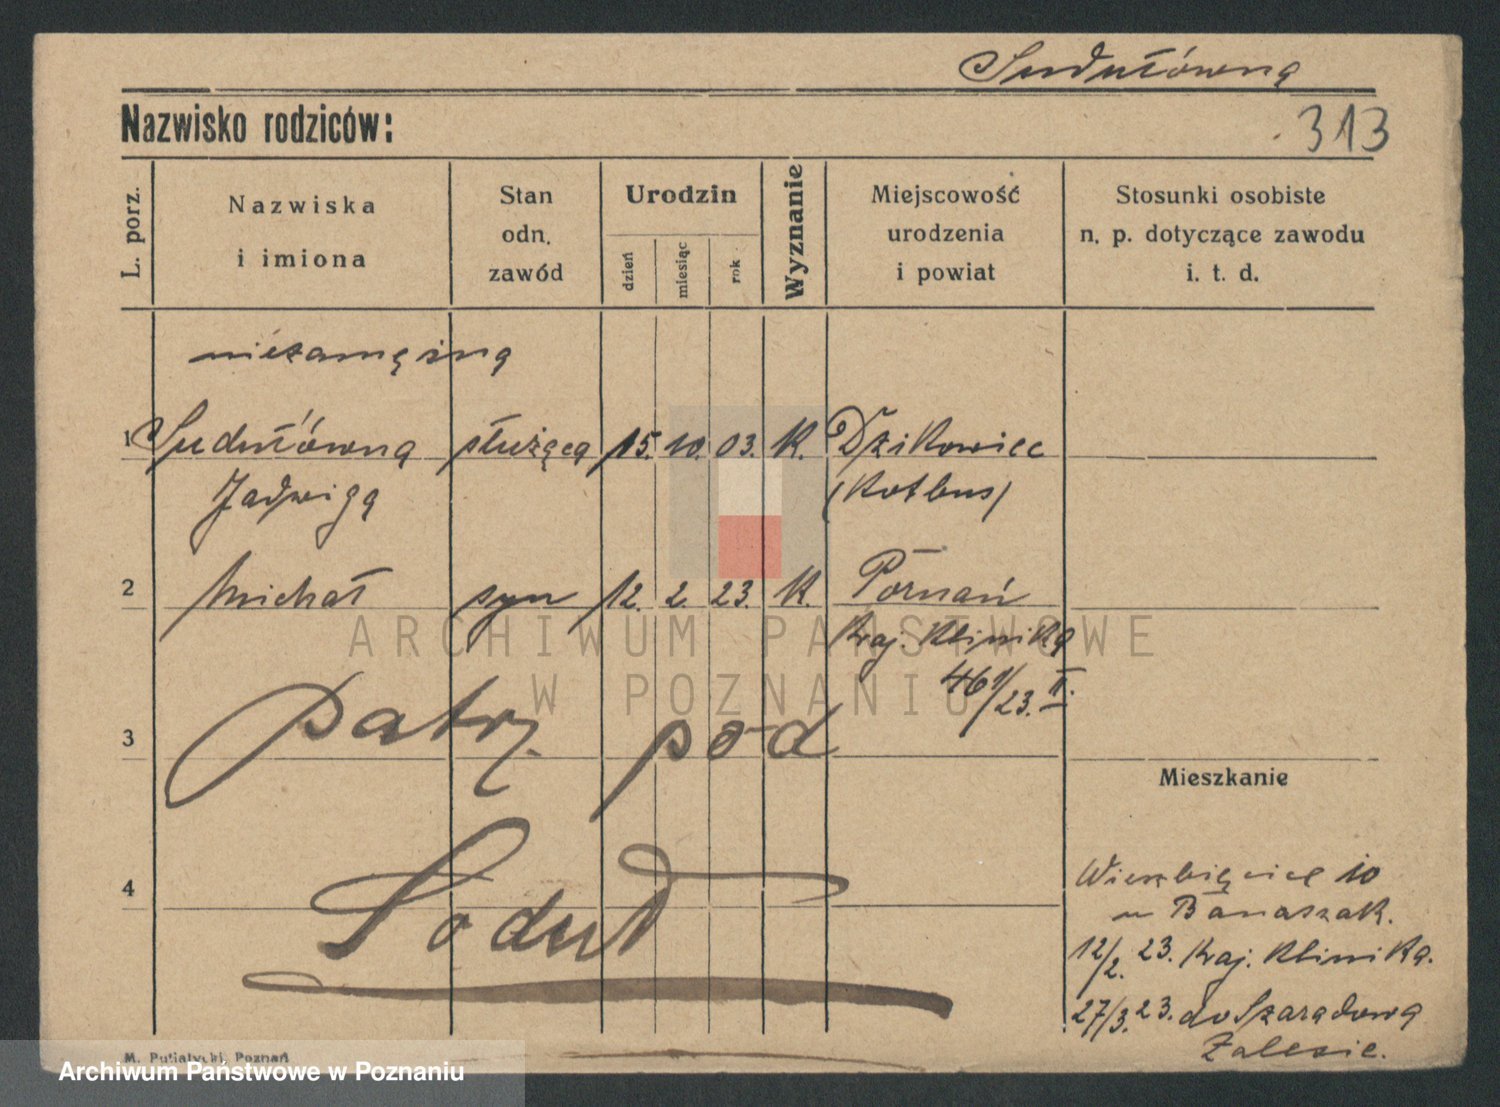 Sudułówna
Nazwisko rodziców:
313
L. porz.
Nazwiska
i imiona
Stan
odn.
zawód
Urodzin
dzień
miesiąc
rok
Wyznanie
Miejscowość
urodzenia
i powiat
Stosunki osobiste
n. p. dotyczące zawodu
i. t. d.
niezamężna
1 Sudułówna służąca 15. 10. 03. K. Dzikowiec
Jadwiga (Kotbus)
2 Michał syn 12. 2. 23. K. Poznań
Kraj. Klinika
461/23. II.
ARCHIWUM PAŃSTWOWE
W POZNANIU
3 patrz pod
Mieszkanie
4 Soduł
Wierzbięcice 10
u Banaszak.
12/2. 23. Kraj. Klinika.
27/3. 23. do Szaradowa
Zalesie.
M. Putiatycki, Poznań
Archiwum Państwowe w Poznaniu